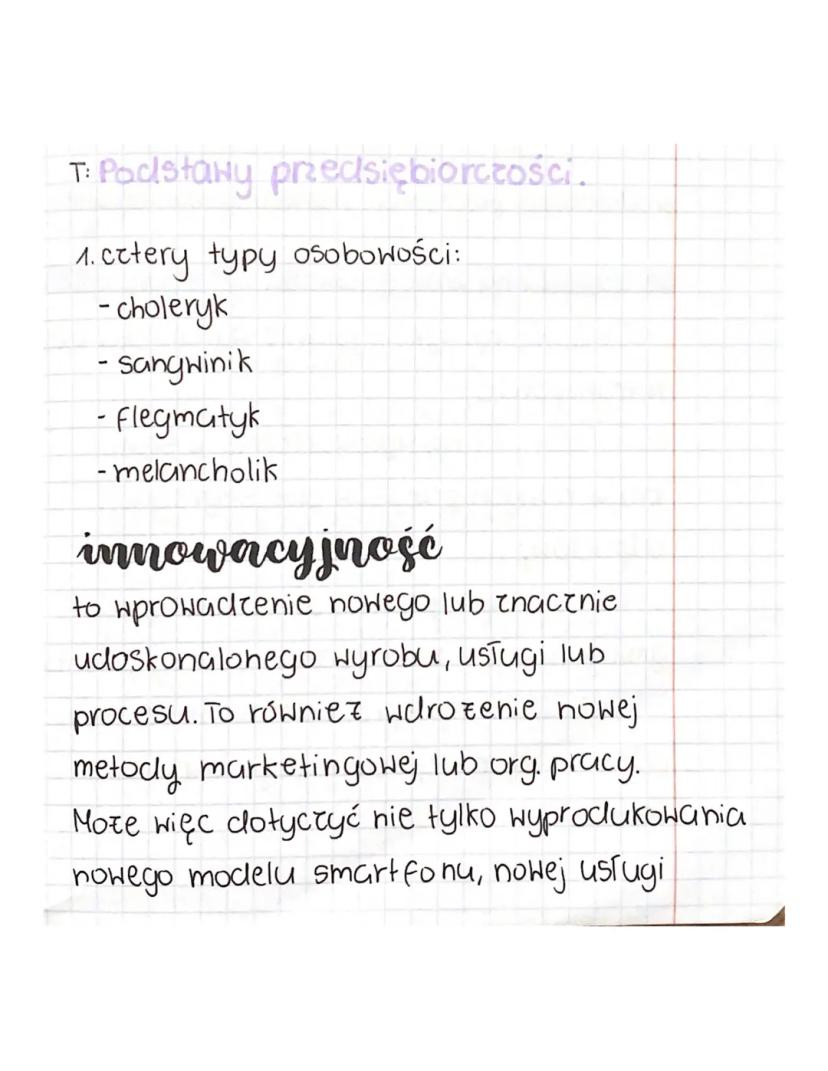 T: Podstawy przedsiębiorczości.
1. cztery typy osobowości:
- choleryk
- sangwinik
- flegmatyk
- melancholik
innowacyjność
to wprowadzenie nowego lub znacznie
udoskonalonego wyrobu, usługi lub
procesu. To również wdrożenie nowej
metody marketingowej lub org. pracy.
Może więc dotyczyć nie tylko wyprodukowania
nowego modelu smartfonu, nowej usługi